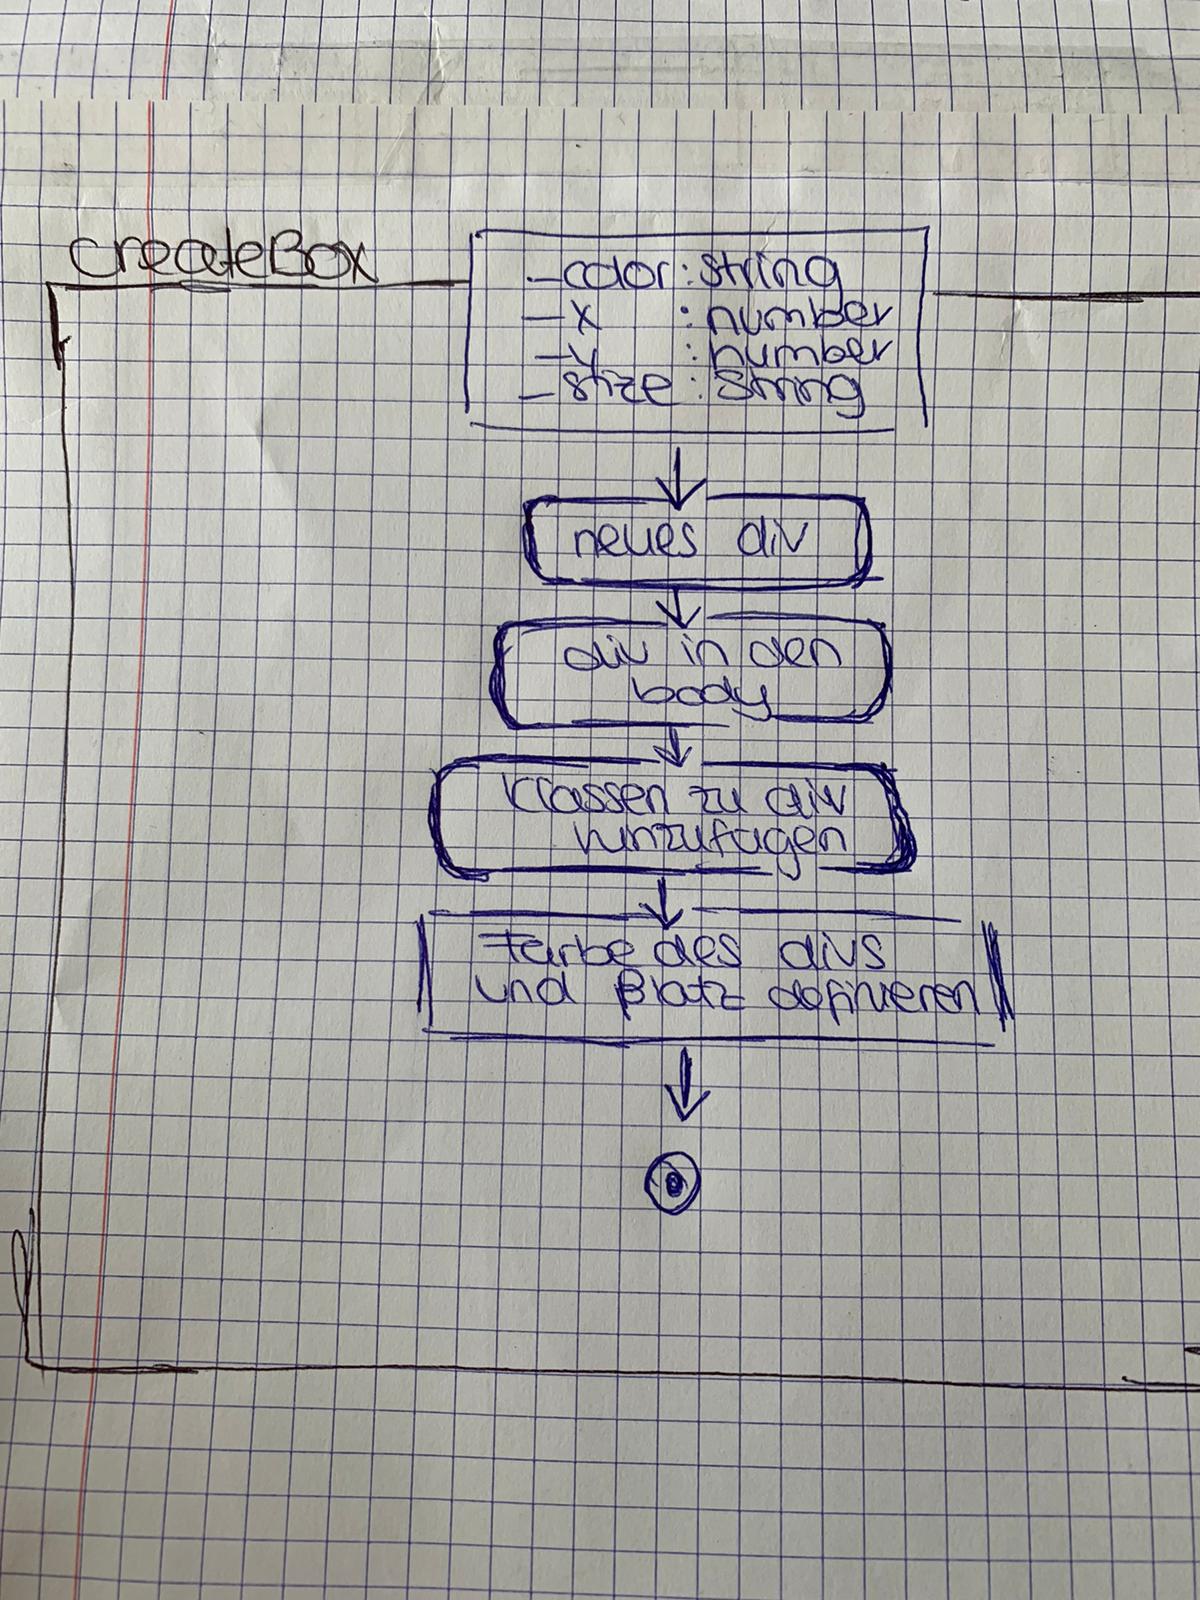 createBox
- color : string
- x : number
- y : number
- size : string
neues div
div in den
body
Klassen zu div
hinzufügen
Farbe des divs
und Platz definieren